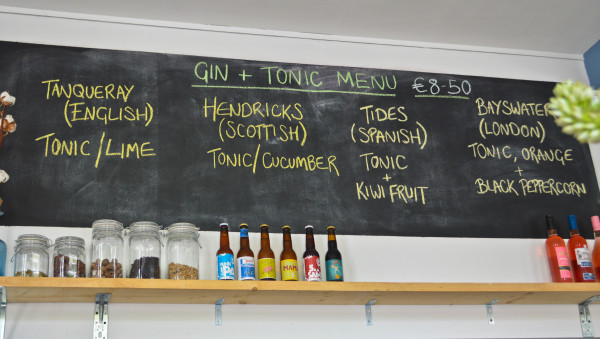 GIN + TONIC MENU €8-50
TANQUERAY
(ENGLISH)
TONIC/LIME
HENDRICKS
(SCOTTISH)
TONIC/CUCUMBER
TIDES
(SPANISH)
TONIC
+
KIWI FRUIT
BAYSWATER
(LONDON)
TONIC, ORANGE
+
BLACK PEPPERCORN